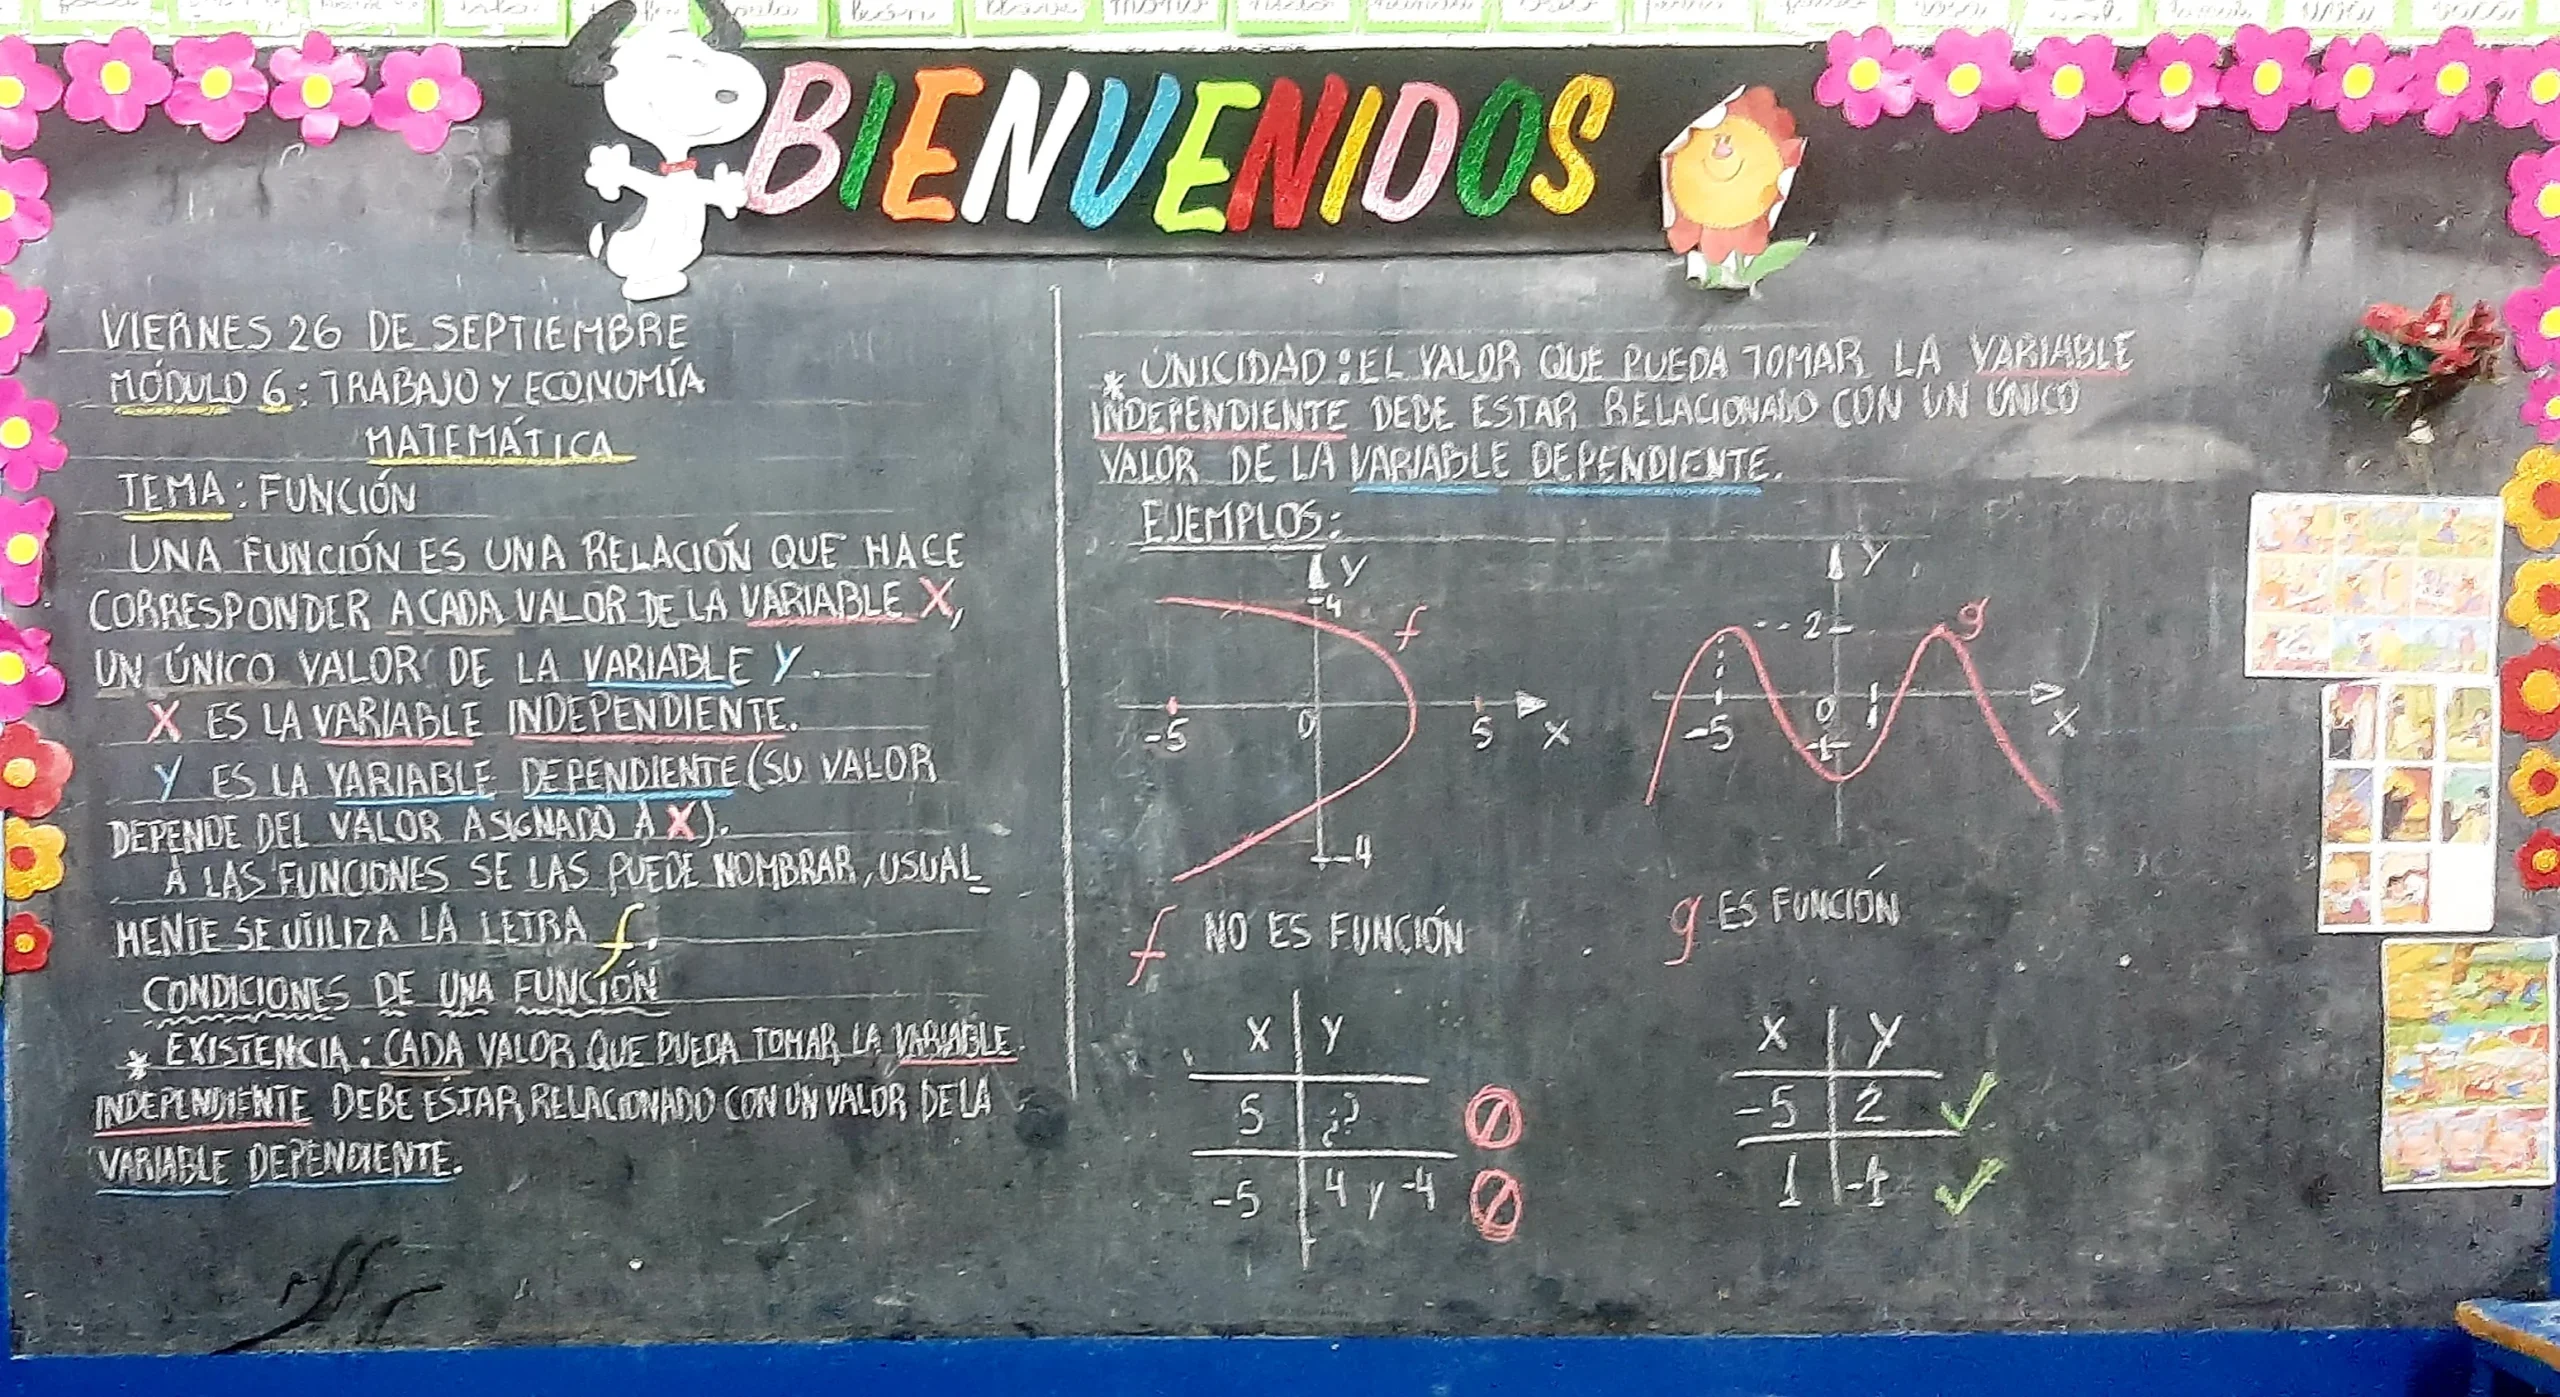 BIENVENIDOS
VIERNES 26 DE SEPTIEMBRE
MÓDULO 6: TRABAJO Y ECONOMÍA
MATEMÁTICA
TEMA: FUNCIÓN
UNA FUNCIÓN ES UNA RELACIÓN QUE HACE
CORRESPONDER A CADA VALOR DE LA VARIABLE X,
UN ÚNICO VALOR DE LA VARIABLE Y.
X ES LA VARIABLE INDEPENDIENTE.
Y ES LA VARIABLE DEPENDIENTE (SU VALOR
DEPENDE DEL VALOR ASIGNADO A X).
A LAS FUNCIONES SE LAS PUEDE NOMBRAR, USUAL_
MENTE SE UTILIZA LA LETRA f.
CONDICIONES DE UNA FUNCIÓN
* EXISTENCIA: CADA VALOR QUE PUEDA TOMAR LA VARIABLE
INDEPENDIENTE DEBE ESTAR RELACIONADO CON UN VALOR DE LA
VARIABLE DEPENDIENTE.
* UNICIDAD: EL VALOR QUE PUEDA TOMAR LA VARIABLE
INDEPENDIENTE DEBE ESTAR RELACIONADO CON UN ÚNICO
VALOR DE LA VARIABLE DEPENDIENTE.
EJEMPLOS:
y
4
f
-5 0 5 x
-4
f NO ES FUNCIÓN
x y
5 ¿?
-5 4 y -4
y
2
g
-5 0 1 x
g ES FUNCIÓN
x y
-5 2
1 -1